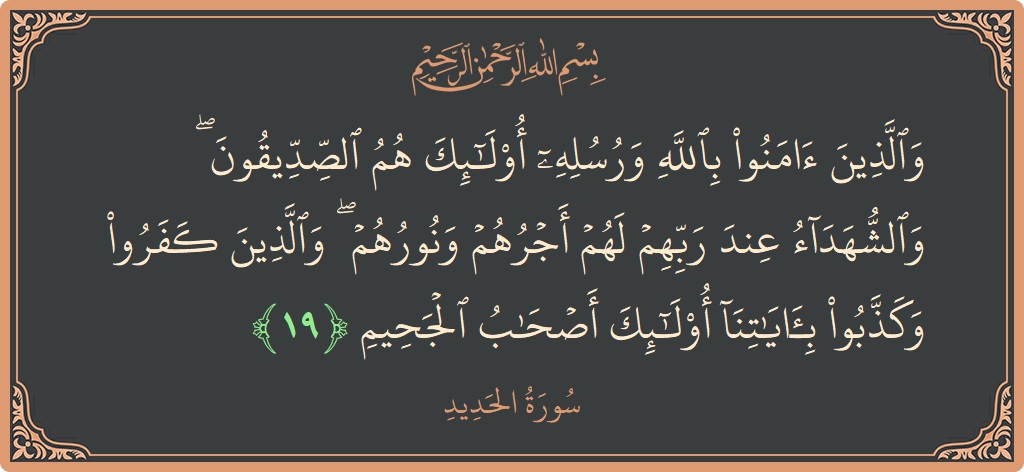 بِسْمِ ٱللَّهِ ٱلرَّحْمَٰنِ ٱلرَّحِيمِ
وَٱلَّذِينَ ءَامَنُوا۟ بِٱللَّهِ وَرُسُلِهِۦٓ أُو۟لَـٰٓئِكَ هُمُ ٱلصِّدِّيقُونَ ۖ
وَٱلشُّهَدَآءُ عِندَ رَبِّهِمْ لَهُمْ أَجْرُهُمْ وَنُورُهُمْ ۖ وَٱلَّذِينَ كَفَرُوا۟
وَكَذَّبُوا۟ بِـَٔايَـٰتِنَآ أُو۟لَـٰٓئِكَ أَصْحَـٰبُ ٱلْجَحِيمِ ﴿١٩﴾
سُورَةُ الحَدِيدِ